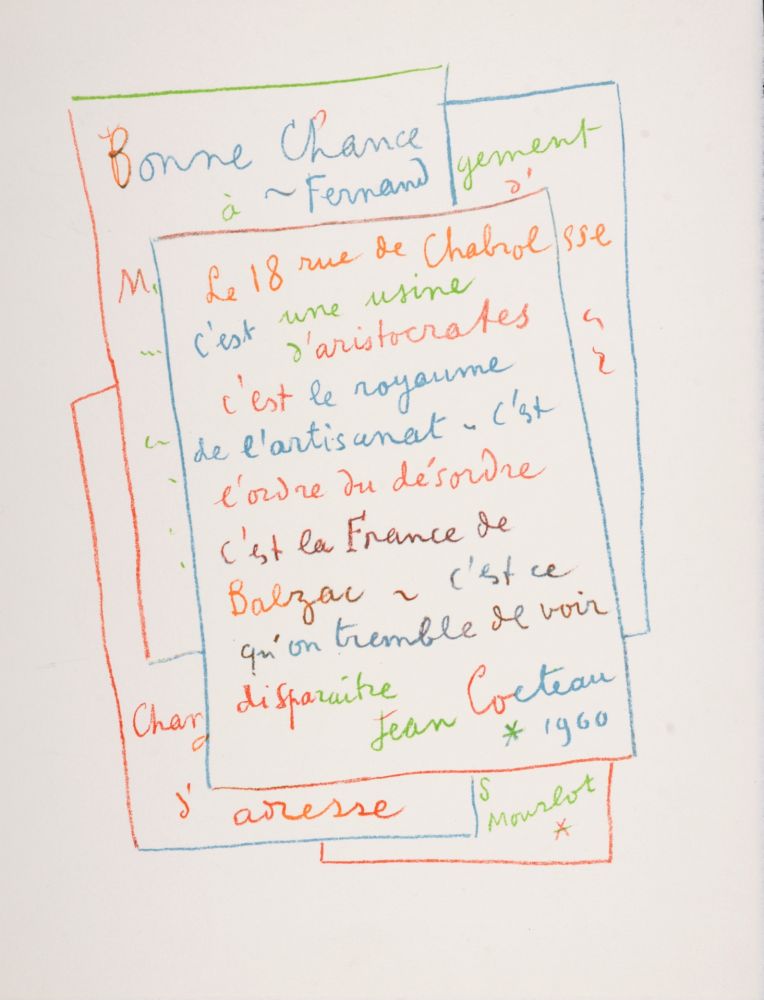 Bonne Chance
à ~ Fernand
gement
d'
M
Le 18 rue de Chabrol
sse
c'est une usine
d'aristocrates
c'est le royaume
de l'artisanat ~ c'est
l'ordre du désordre
c'est la France de
Balzac ~ c'est ce
qu'on tremble de voir
disparaître
Jean Cocteau
* 1960
Chang
d' adresse
S
Mourlot
*